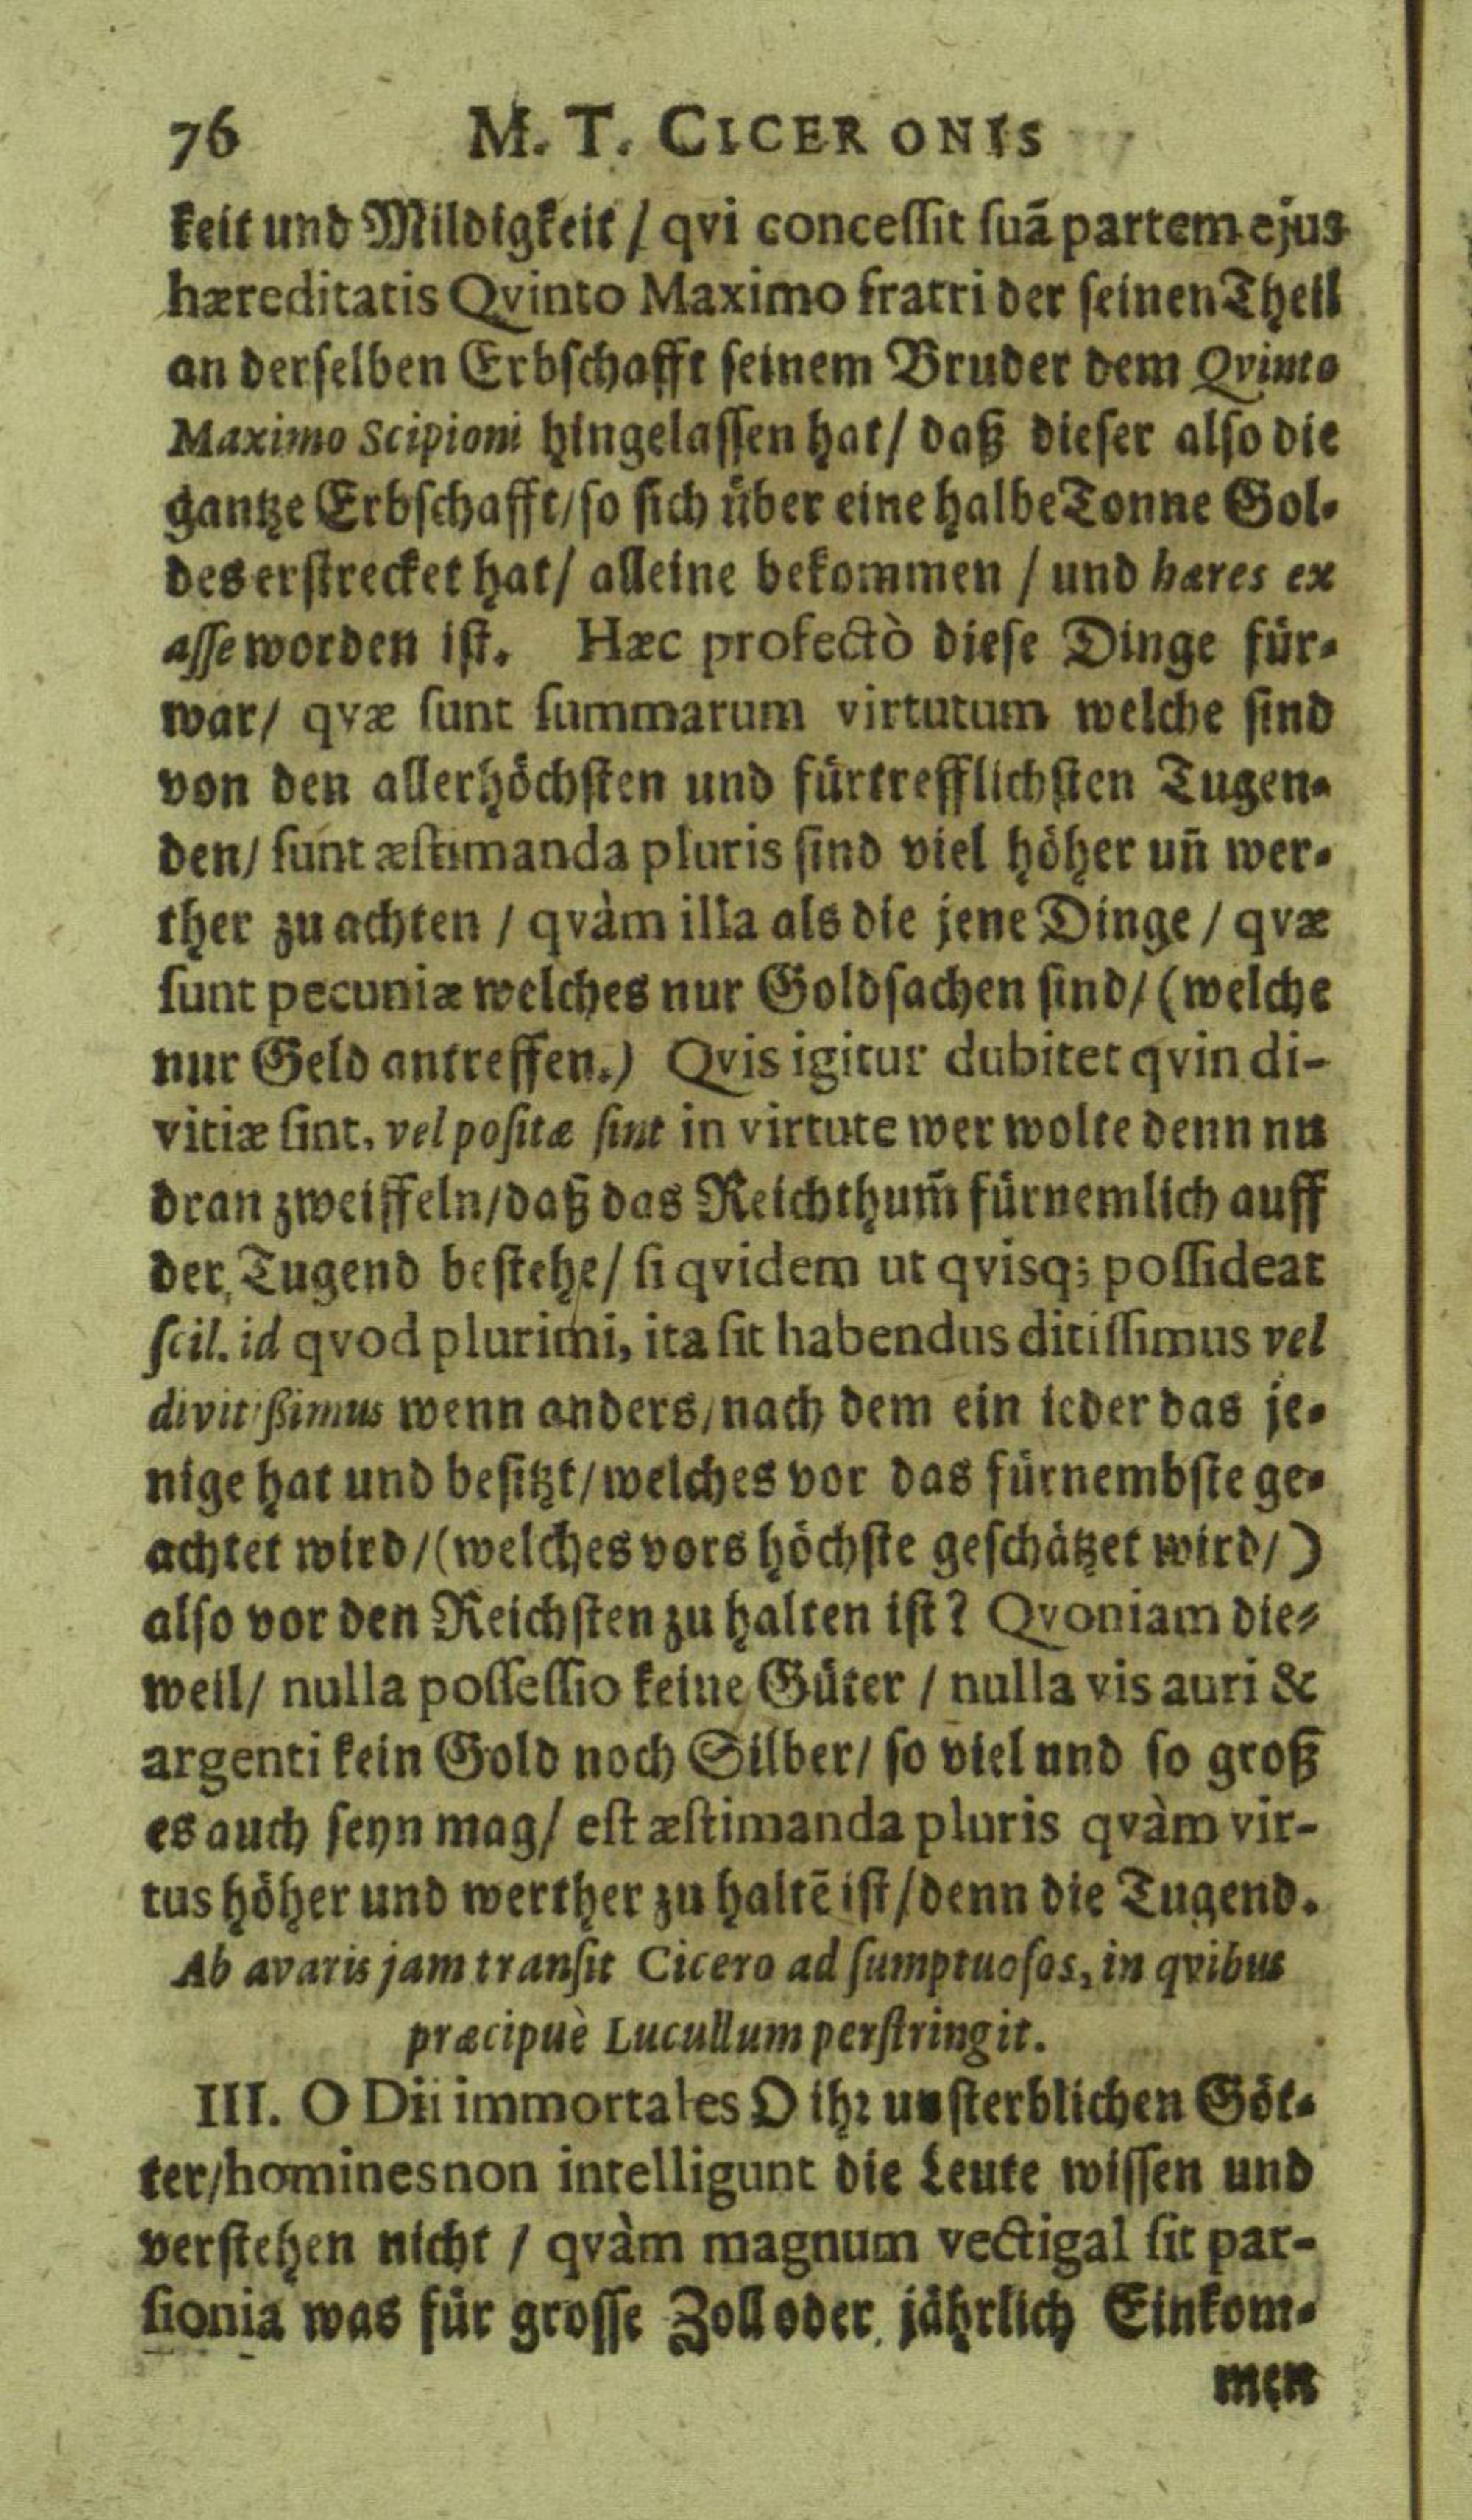 76 M. T. CICERONIS
keit und Mildigkeit / qvi concessit suã partem ejus
hæreditatis Qvinto Maximo fratri der seinen Theil
an derselben Erbschafft seinem Bruder dem Qvinto
Maximo Scipioni hingelassen hat / daß dieser also die
gantze Erbschafft / so sich über eine halbe Tonne Gol-
des erstrecket hat / alleine bekommen / und hæres ex
asse worden ist. Hæc profectò diese Dinge für-
war / qvæ sunt summarum virtutum welche sind
von den allerhöchsten und fürtrefflichsten Tugen-
den / sunt æstimanda pluris sind viel höher uñ wer-
ther zu achten / qvàm illa als die jene Dinge / qvæ
sunt pecuniæ welches nur Goldsachen sind / (welche
nur Geld antreffen.) Qvis igitur dubitet qvin di-
vitiæ sint, vel positæ sint in virtute wer wolte denn nu
dran zweiffeln / daß das Reichthum̃ fürnemlich auff
der Tugend bestehe / si qvidem ut qvisq; possideat
scil. id qvod plurimi, ita sit habendus ditissimus vel
divitißimus wenn anders / nach dem ein ieder das je-
nige hat und besitzt / welches vor das fürnembste ge-
achtet wird / (welches vors höchste geschätzet wird /)
also vor den Reichsten zu halten ist? Qvoniam die-
weil / nulla possessio keine Güter / nulla vis auri &
argenti kein Gold noch Silber / so viel und so groß
es auch seyn mag / est æstimanda pluris qvàm vir-
tus höher und werther zu haltẽ ist / denn die Tugend.
Ab avaris jam transit Cicero ad sumptuosos, in qvibus
præcipuè Lucullum perstringit.
III. O Dii immortales O ihr unsterblichen Göt-
ter / homines non intelligunt die Leute wissen und
verstehen nicht / qvàm magnum vectigal sit par-
sionia was für grosse Zoll oder jährlich Einkom-
men